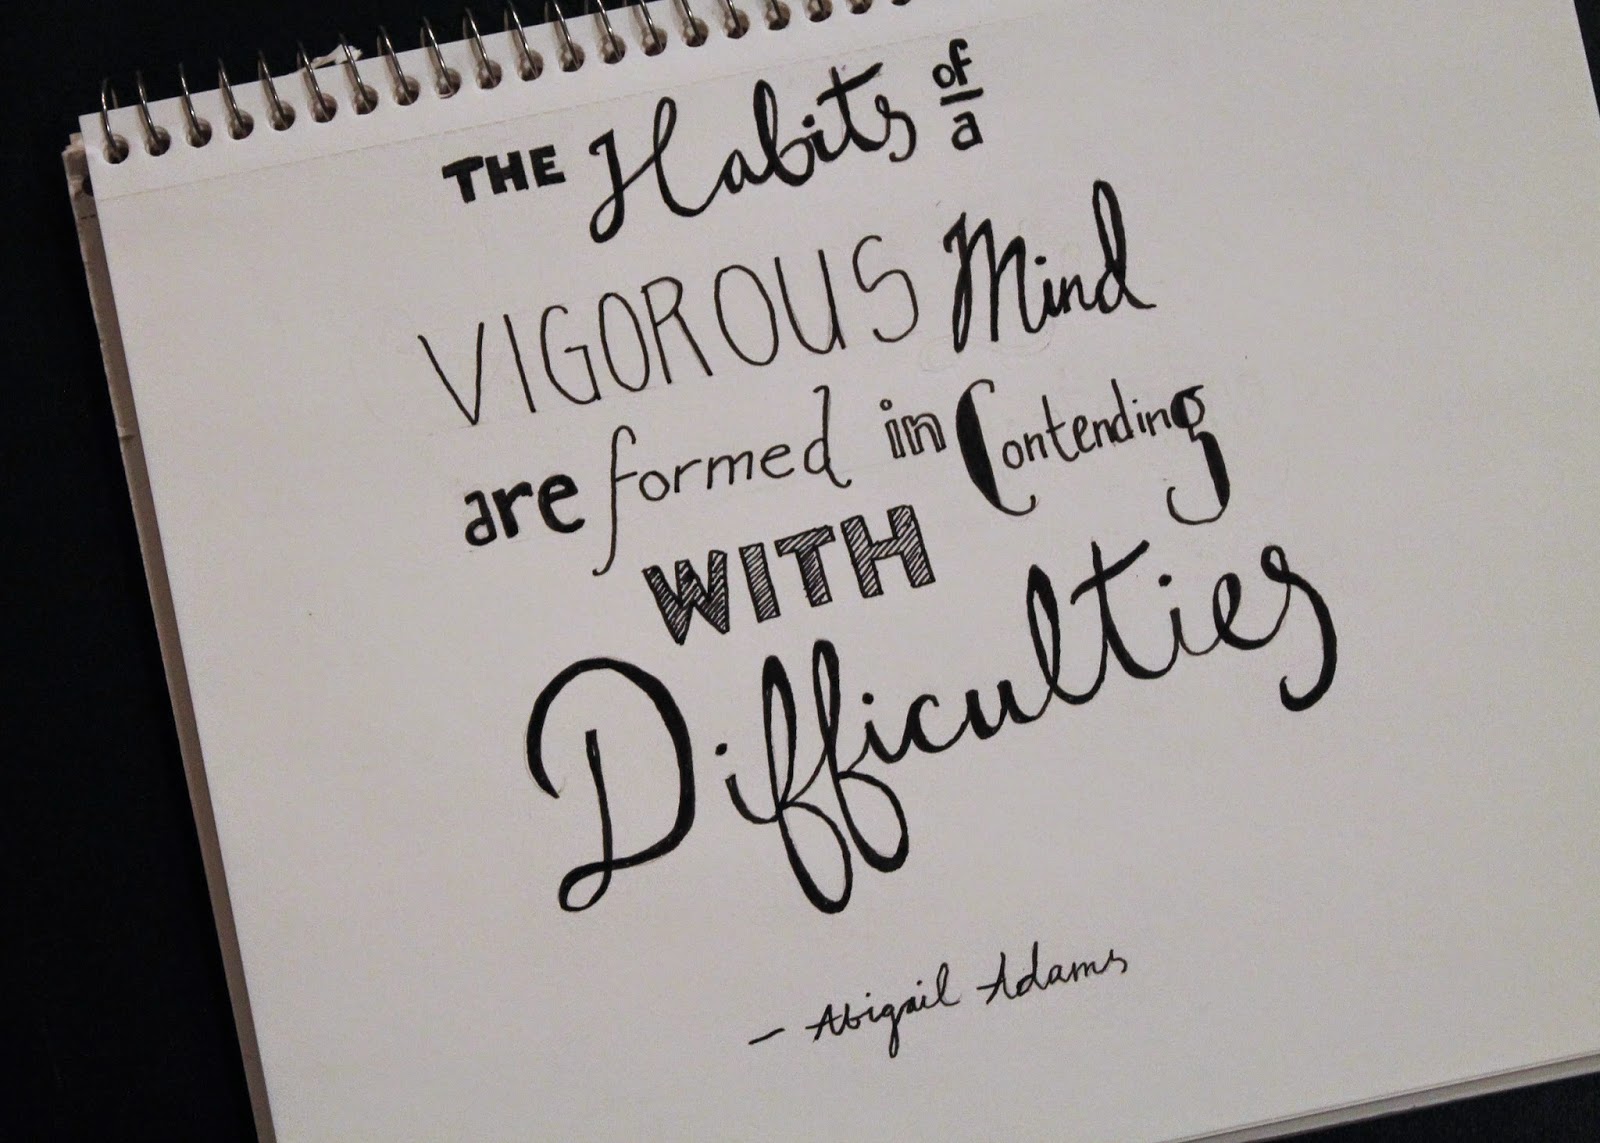 THE Habits of a
VIGOROUS Mind
are formed in Contending
WITH
Difficulties
– Abigail Adams